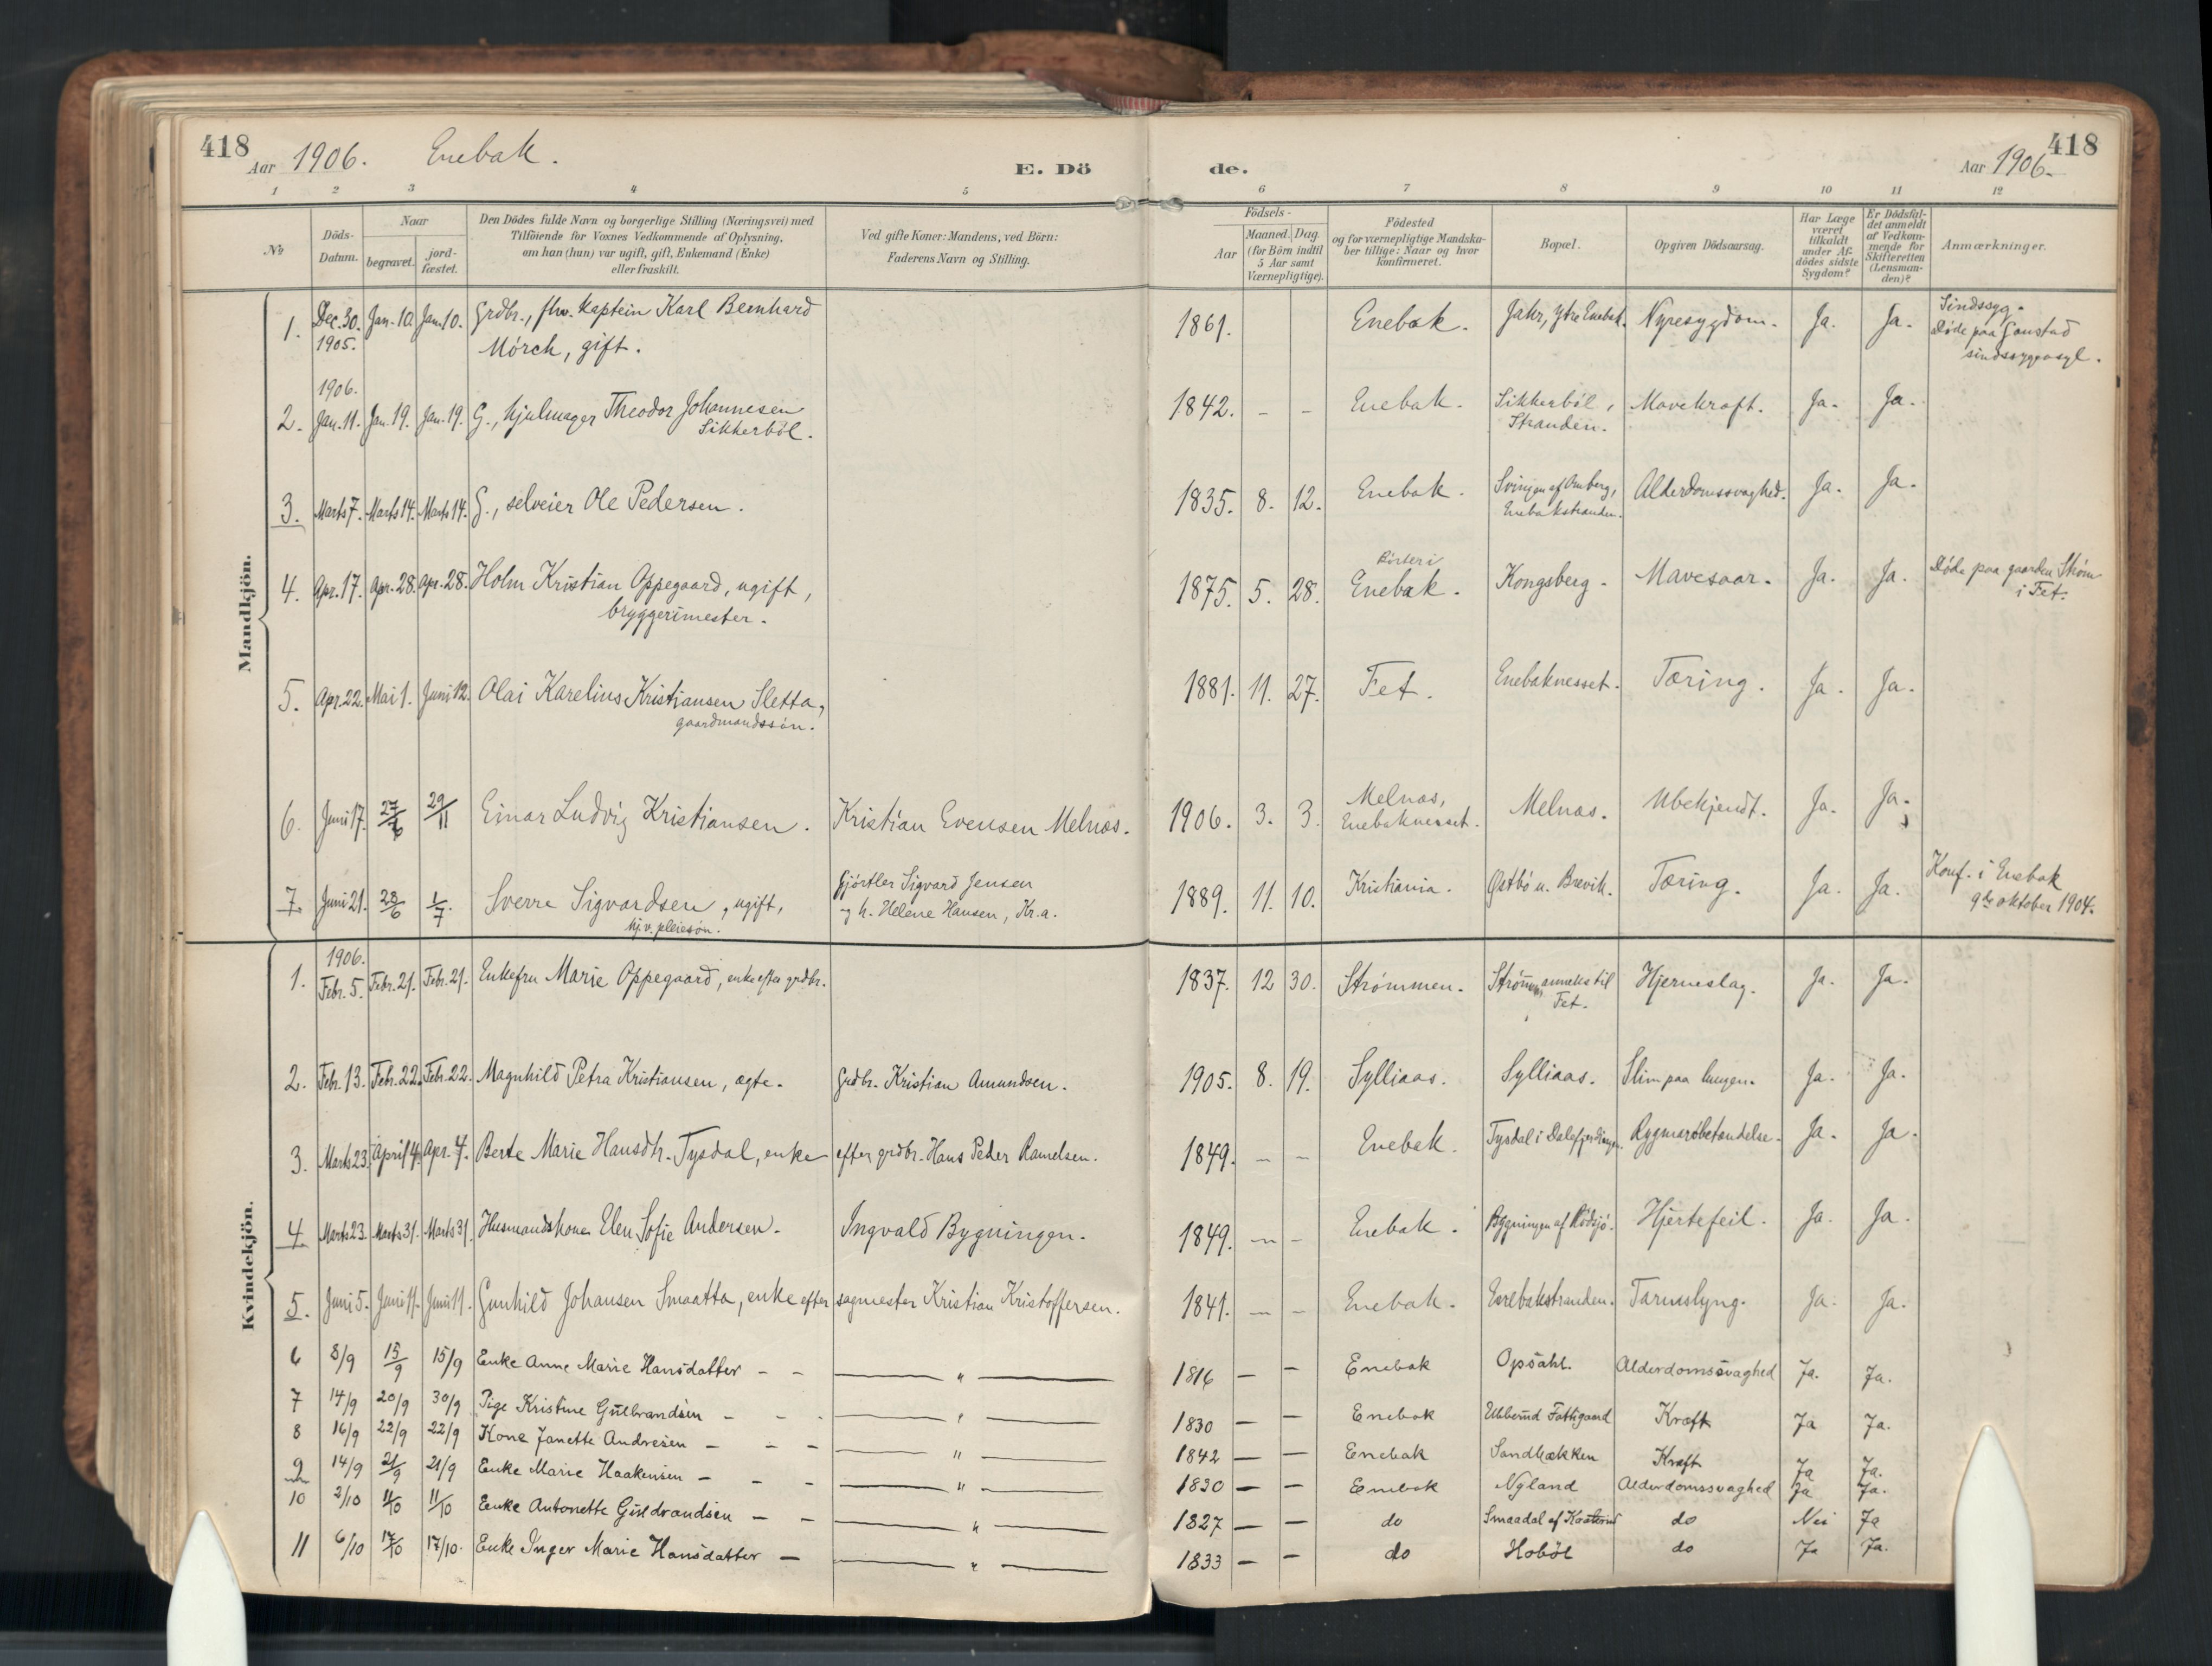 418 Aar 1906. Enebak. E. Dö de. Aar 1906. 418
1 2 3 4 5 6 7 8 9 10 11 12
№ Döds-Datum. Naar begravet. jord-fæstet. Den Dödes fulde Navn og borgerlige Stilling (Næringsvei) med Tilföiende for Voxnes Vedkommende af Oplysning, om han (hun) var ugift, gift, Enkemand (Enke) eller fraskilt. Ved gifte Koner: Mandens, ved Börn: Faderens Navn og Stilling. Födsels- Aar Maaned. Dag (for Börn indtil 5 Aar samt Værnepligtige). Födested og for værnepligtige Mandskaber tillige: Naar og hvor konfirmeret. Bopæl. Opgiven Dödsaarsag. Har Læge været tilkaldt under Afdödes sidste Sygdom? Er Dödsfaldet anmeldt af Vedkommende for Skifteretten (Lensmanden)? Anmærkninger.
Mandkjön.
1. Dec. 30. 1905. Jan. 10 Jan. 10. Grdbr., fhv. kaptein Karl Bernhard Mörch, gift. 1861. Enebak. Jahr, Ytre Enebak. Nyresygdom. Ja. Ja. Sindssyg. Døde paa Gaustad sindssygeasyl.
2. 1906. Jan. 11. Jan. 19. Jan. 19. G., hjulmager Theodor Johannesen Sikkerböl. 1842. - - Enebak. Sikkerböl, Stranden. Mavekræft. Ja. Ja.
3. Marts 7. Marts 14. Marts 14. G., selveier Ole Pedersen. 1835. 8. 12. Enebak. Svingen af Enebakstranden. Alderdomssvaghed. Ja. Ja.
4. Apr. 17. Apr. 28. Apr. 28. Holm Kristian Oppegaard, ugift, bryggerimester. 1875. 5. 28. Enebak. Kongsberg. Mavesaar. Ja. Ja. Døde paa gaarden Strøm i Fet.
5. Apr. 22. Mai 1. Juni 12. Olai Karelius Kristiansen Sletta, gaardmandssön. 1881. 11. 27. Fet. Enebaknesset. Tæring. Ja. Ja.
6. Juni 17. 27/6 29/11 Einar Ludvig Kristiansen. Kristian Evensen Melnæs. 1906. 3. 3. Melnæs, Enebaknesset. Melnæs. Ubekjendt. Ja. Ja.
7. Juni 21. 28/6 1/7. Sverre Sigvardsen, ugift, hj.v. pleiesön. Gjörtler Sigvard Jensen og h. Helene Hansen, Kr.a. 1889. 11. 10. Kristiania. Østbö u. Brevik. Tæring. Ja. Ja. Konf. i Enebak 9de oktober 1904.
Kvindekjön.
1. 1906. Febr. 5. Febr. 21. Febr. 21. Enkefru Marie Oppegaard, enke efter grdbr. 1837. 12 30. Strömmen. Strömmen anneks til Fet. Hjerneslag. Ja. Ja.
2. Febr. 13. Febr. 22. Febr. 22. Magnhild Petra Kristiansen, ægte. Grdbr. Kristian Amundsen. 1905. 8. 19. Sylliaas. Sylliaas. Slim paa lungen. Ja. Ja.
3. Marts 23. April 4. Apr. 4. Berte Marie Hansdtr. Tysdal, enke efter grdbr. Hans Peder 1849. - - Enebak. Tysdal i Dalefjerdingen. Rygmarvsbetændelse. Ja. Ja.
4. Marts 23. Marts 31. Marts 31. Husmandskone Elen Sofie Andersen. Ingvald Bygningen. 1849. - - Enebak. Bygningen af Rödsjö. Hjertefeil. Ja. Ja.
5. Juni 5. Juni 11. Juni 11. Gunhild Johansen Smaatta, enke efter sagmester Kristian Kristoffersen. 1841. - - Enebak. Enebakstranden. Tarmslyng. Ja. Ja.
6 8/9 15/9 15/9 Enke Anne Marie Hansdatter - - — " — 1816 - - Enebak Opsahl. Alderdomssvaghed Ja. Ja.
7 14/9 20/9 30/9 Pige Kristine Gulbrandsen - - - — " — 1830 - - Enebak Ubberud Fattigaard Kræft Ja Ja.
8 16/9 22/9 22/9 Kone Janette Andresen - - - — " — 1842 - - Enebak Sandbækken Kræft Ja Ja.
9 14/9 21/9 21/9 Enke Marie Haakensen - - - — " — 1830 - - Enebak Nyland Alderdomssvaghed Ja Ja.
10 2/10 11/10 11/10 Enke Antonette Guldrandsen - - — " — 1827 - - do Smaadal af do Nei Ja
11 6/10 17/10 17/10. Enke Inger Marie Hansdatter - — " — 1833 - - do Hoböl do Ja Ja.